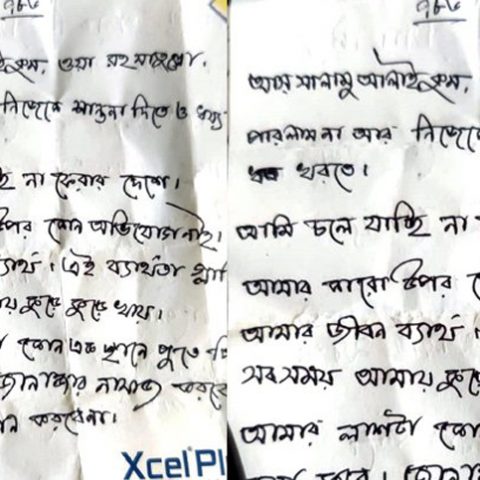 ৭৮৬
ওয়া রহমাতুল্লা.
নিজেকে শান্তনা দিতে ও
না ফেরার দেশে।
উপর কোন অভিযোগ নাই।
ব্যার্থ। এই ব্যার্থতা গ্লা
কুড়ে কুড়ে খায়।
কোন এক স্থানে পুতে
জানাজার নামাজ করবে
করবেনা।
Xcel Pl
৭৮৬
আস সালামু আলাইকুম,
পারলাম না আর নিজেকে
ধরতে।
আমি চলে যাচ্ছি না
আমার কারো উপর
আমার জীবন ব্যার্থ।
সব সময় আমায় কুড়ে
আমার লাশটা কোন